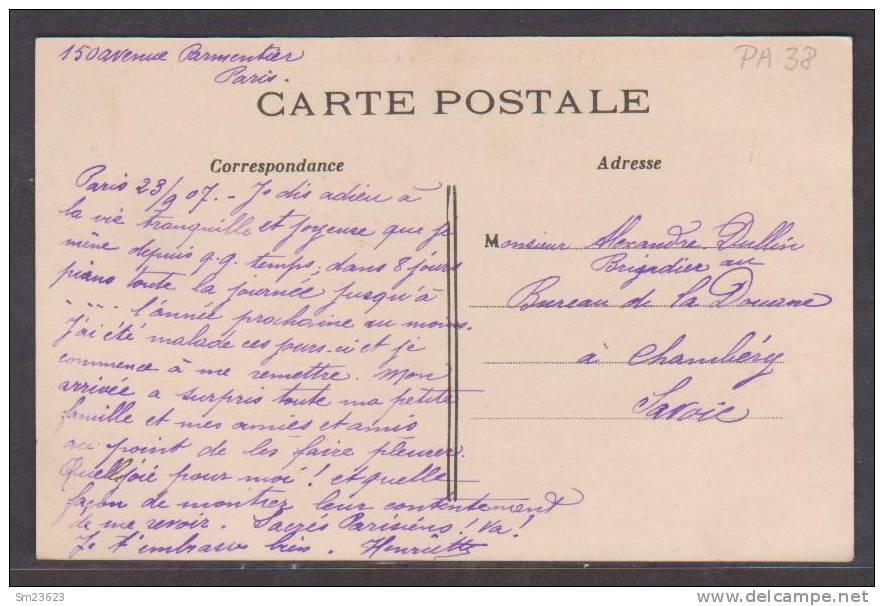 150 avenue Parmentier
Paris.
PA 38
CARTE POSTALE
Correspondance
Adresse
Paris 23/9 07. - Je dis adieu à
la vie tranquille et joyeuse que je
mène depuis q.q. temps, dans 8 jours
piano toute la journée jusqu'à
..... l'année prochaine au moins.
J'ai été malade ces jours-ci et je
commence à me remettre. Mon
arrivée a surpris toute ma petite
famille et mes amies et amis
au point de les faire pleurer.
Quelle joie pour moi! et quelle
façon de montrer leur contentement
de me revoir. Sacrés Parisiens! Va!
Je t'embrasse bien. Henriette
Monsieur Alexandre Dullin
Brigadier au
Bureau de la Douane
à Chambéry
Savoie
Sm23623
www.delcampe.net